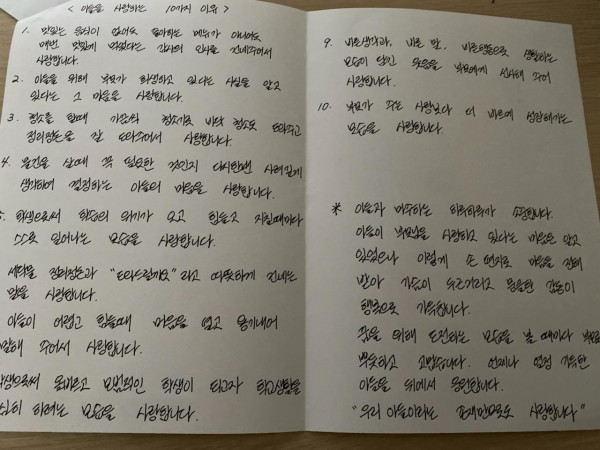 < 아들을 사랑하는 10가지 이유 >
1. 맛있는 음식이 없어도 좋아하는 메뉴가 아니어도
매번 맛있게 먹었다는 감사의 인사를 건네주어서
사랑합니다.
2. 아들을 위해 부모가 희생하고 있다는 사실을 알고
있다는 그 마음을 사랑합니다.
3. 청소를 할때 가끔씩 청소기로 바닥 청소도 도와주고
정리정돈을 잘 도와주어서 사랑합니다.
4. 물건을 살때 꼭 필요한 것인지 다시한번 사려깊게
생각하며 결정하는 아들의 마음을 사랑합니다.
5. 학생으로써 학업의 위기가 오고 힘들고 지칠때마다
스스로 일어나는 모습을 사랑합니다.
세탁물 정리정돈과 "도와드릴까요" 라고 따뜻하게 건네는
말을 사랑합니다.
아들이 어렵고 힘들때 마음을 열고 용기내어
말해 주어서 사랑합니다.
학생으로써 올바르고 모범적인 학생이 되고자 학교생활을
하려는 모습을 사랑합니다.
9. 바른생각과, 바른 말, 바른행동으로 생활하는
모습이 담긴 웃음을 부모에게 선사해 주어
사랑합니다.
10. 부모가 주는 사랑보다 더 바르게 성장해가는
모습을 사랑합니다.
* 아들과 마주하는 하루하루가 소중합니다.
아들이 부모님을 사랑하고 있다는 마음은 알고
있었으나 이렇게 손 편지로 마음을 전해
받아 가슴이 두근거리고 뭉클한 감동이
행복으로 가득합니다.
꿈을 위해 도전하는 모습을 볼 때마다 부모는
뿌듯하고 고맙습니다. 언제나 열정 가득한
아들을 뒤에서 응원합니다.
"우리 아들이라는 존재만으로도 사랑합니다"